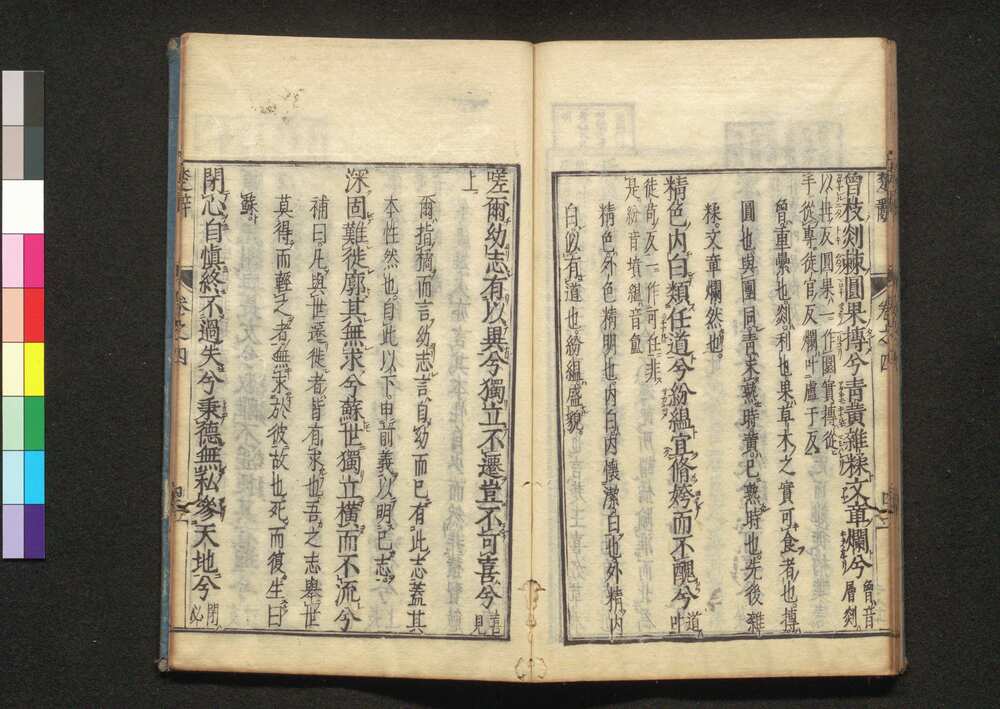 曾枝剡棘圓果摶兮青黃雜糅文章爛兮曾音層剡
以冉反圓果一作圜實摶從
手從專徒官反爛叶盧于反
曾重纍也剡利也果草木之實可食者也摶
圓也與團同青未熟時黃已熟時也先後雜
糅文章爛然也
精色内白類任道兮紛緼宜脩姱而不醜兮道叶
徒茍反一作可任非
是紛音墳緼音氳
精色外色精明也内白内懷潔白也外精内
白似有道也紛緼盛貌
嗟爾幼志有以異兮獨立不遷豈不可喜兮喜見
上
爾指橘而言幼志言自幼而已有此志蓋其
本性然也自此以下申前義以明己志
深固難徙廓其無求兮蘇世獨立橫而不流兮
補曰凡與世遷徙者皆有求也吾之志舉世
莫得而輕之者無求於彼故也死而復生曰
蘇
閉心自慎終不過失兮秉德無私參天地兮閉必
楚辭
卷之四